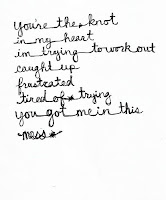 you're the knot
in my heart
im trying to work out
caught up
frustrated
tired of trying
you got me in this
mess